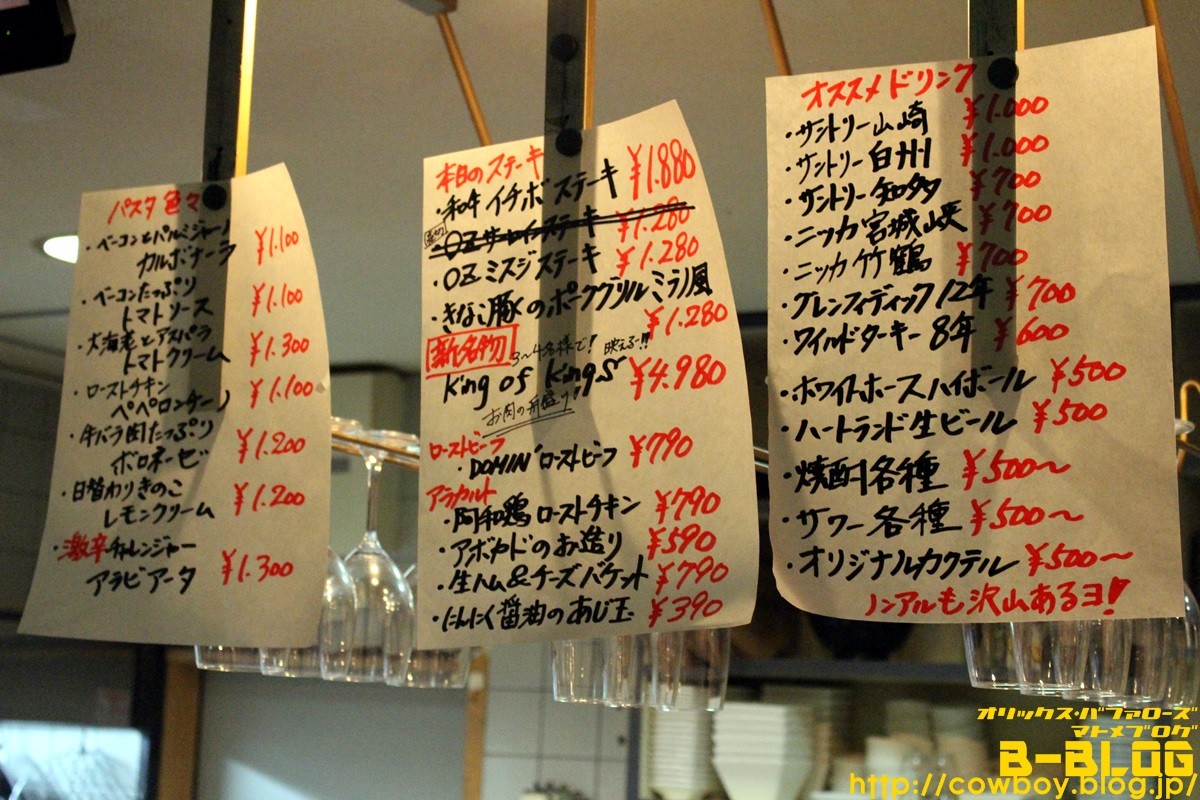 パスタ色々
・ベーコンとパルミジャーノ
カルボナーラ ¥1.100
・ベーコンたっぷり
トマトソース ¥1.100
・大海老とアスパラ
トマトクリーム ¥1.300
・ローストチキン
ペペロンチーノ ¥1.100
・牛バラ肉たっぷり
ボロネーゼ ¥1.200
・日替わりきのこ
レモンクリーム ¥1.200
・激辛チャレンジャー
アラビアータ ¥1.300
本日のステーキ
・和牛イチボステーキ ¥1.880
・OZサーロインステーキ ¥1.280
・OZミスジステーキ ¥1.280
・きなこ豚のポークグリルミラノ風
¥1.280
新名物 3〜4名様で! 映える〜!!
King of Kings ¥4.980
お肉の舟盛り!
ローストビーフ
・DOMIN'ローストビーフ ¥790
アラカルト
・阿和鶏ローストチキン ¥790
・アボカドのお造り ¥590
・生ハム&チーズバケット ¥790
・にんにく醤油のあじ玉 ¥390
オススメドリンク
・サントリー山崎 ¥1.000
・サントリー白州 ¥1.000
・サントリー知多 ¥700
・ニッカ宮城峡 ¥700
・ニッカ竹鶴 ¥700
・グレンフィディック12年 ¥700
・ワイルドターキー8年 ¥600
・ホワイトホースハイボール ¥500
・ハートランド生ビール ¥500
・焼酎各種 ¥500〜
・サワー各種 ¥500〜
・オリジナルカクテル ¥500〜
ノンアルも沢山あるヨ!
オリックス・バファローズ
マトメブログ
B-BLOG
http://cowboy.blog.jp/